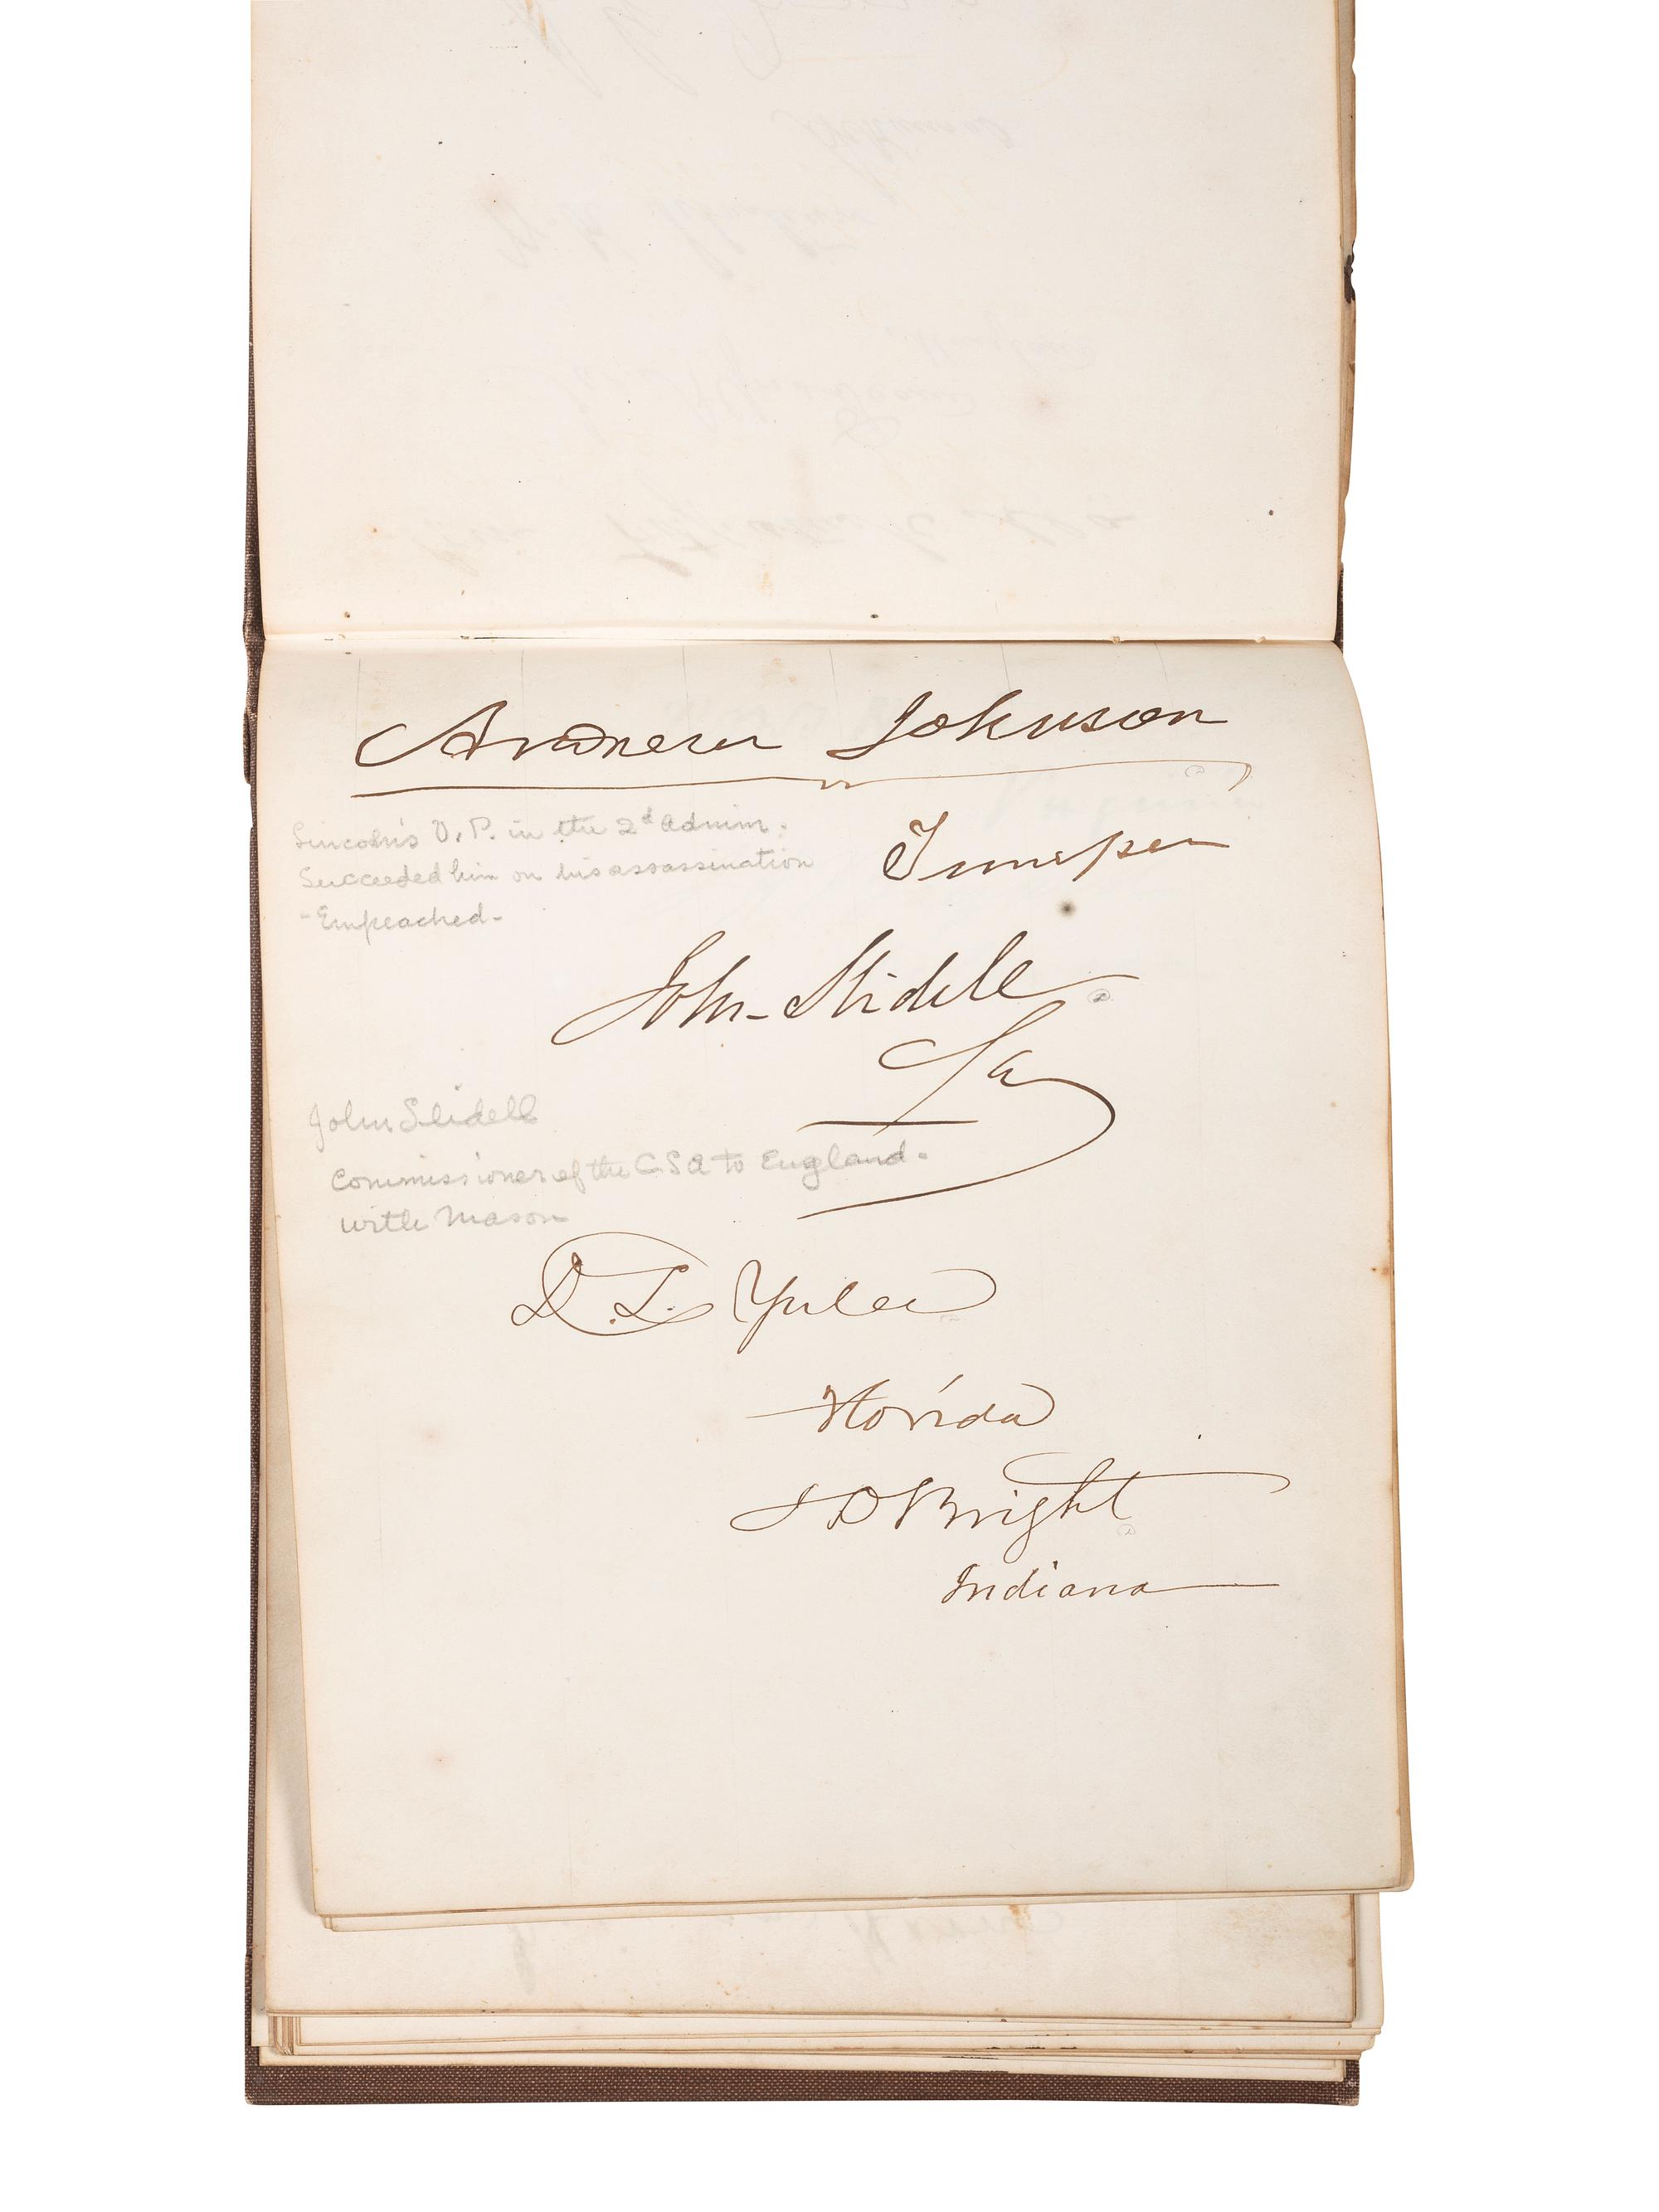 Andrew Johnson
Lincoln's V.P. in the 2d Admin.
Succeeded him on his assassination
- Empeached -
John Slidell
La
John Slidell
Commissioner of the CSA to England.
with Mason
D. L. Yulee
Florida
J D Bright
Indiana